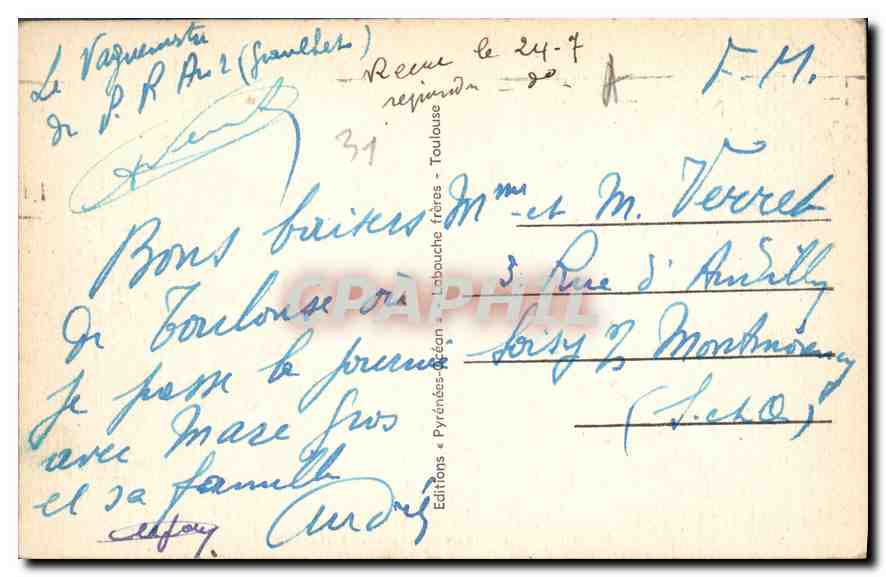 Le Vaguemestre
du P. R Aut 2 (Graulhet)
Recue le 24-7
rejoindu do
A
F. M.
31
Bons baisers
de Toulouse où
je passe la journée
avec Marc Gros
et sa famille
André
Mme et M. Verret
3 Rue d'Andilly
Soisy s/s Montmorency
(S. et O.)
Editions « Pyrénées-Océan » Labouche frères - Toulouse
CPAPHIL